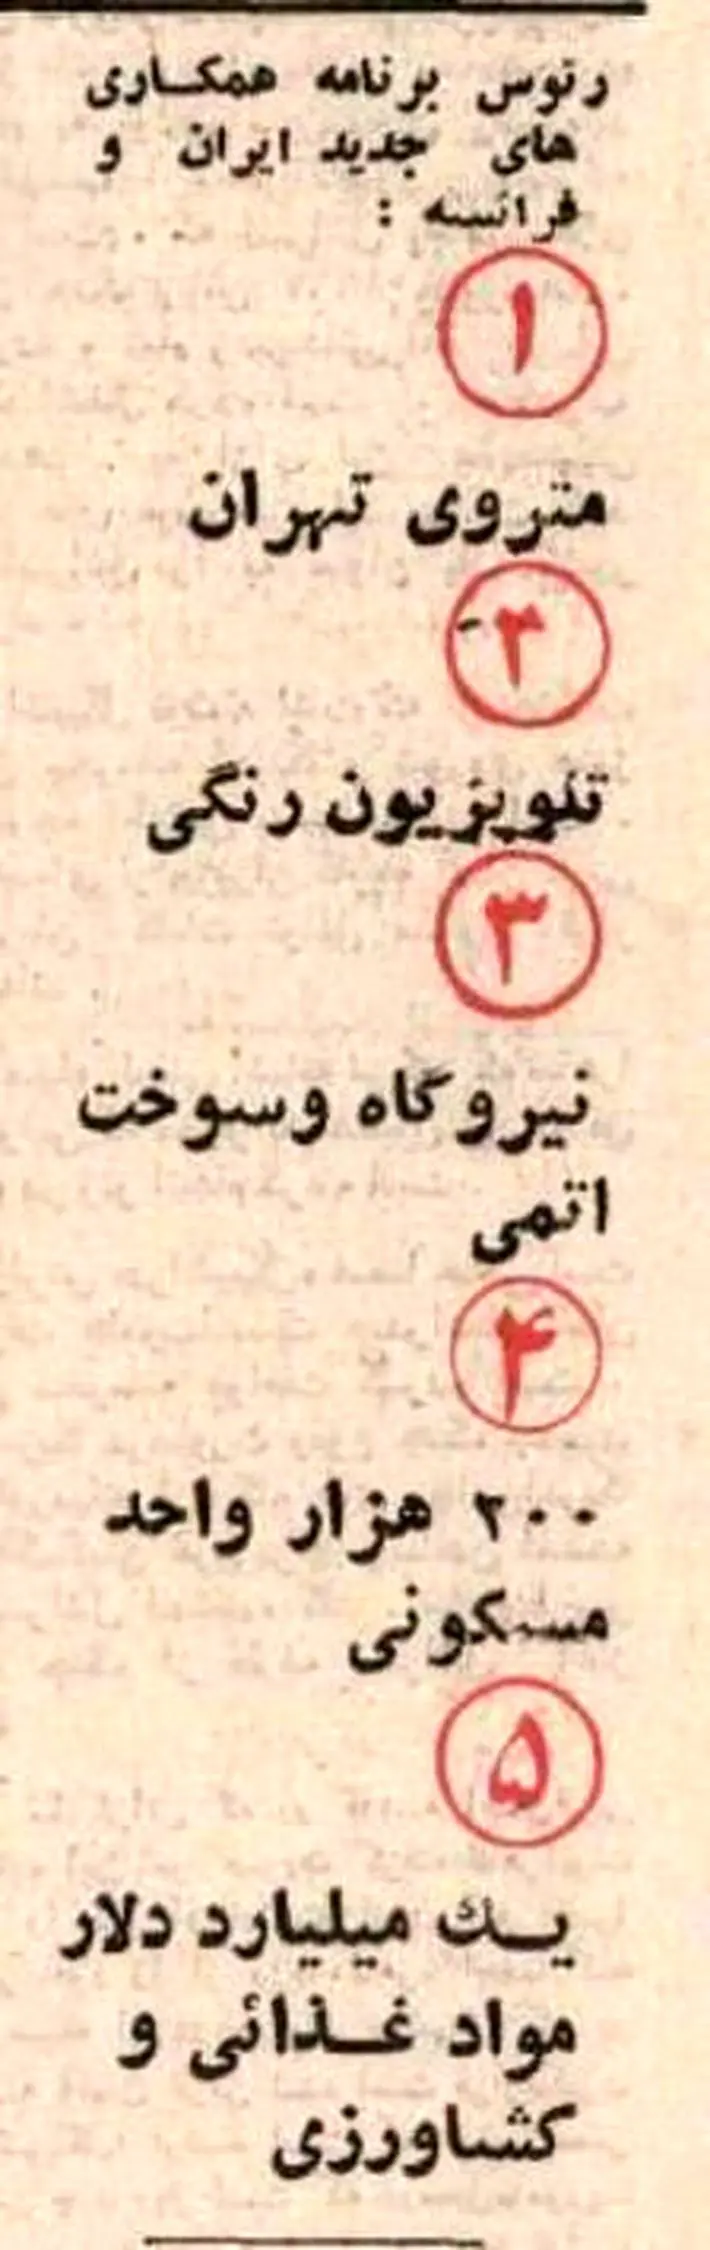 رئوس برنامه همکاری
های جدید ایران و
فرانسه :
۱
متروی تهران
۲
تلویزیون رنگی
۳
نیروگاه وسوخت
اتمی
۴
۲۰۰ هزار واحد
مسکونی
۵
یك میلیارد دلار
مواد غذائی و
کشاورزی